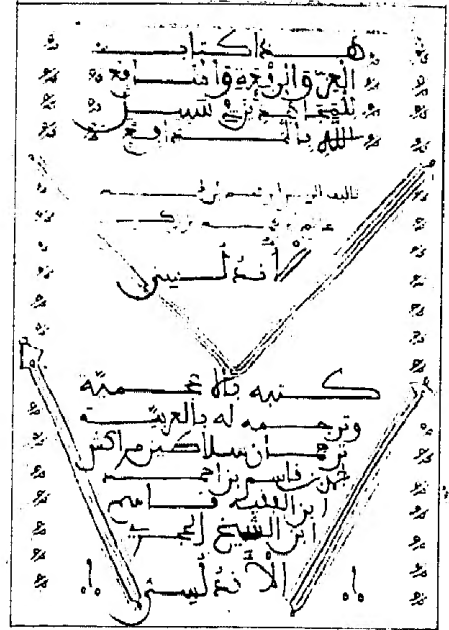 هذا كتاب
العز والرفعة والمنافع
للمجاهدين في سبيل
الله بالمدافع
تاليف الريس ابراهيم بن
غانم بن محمد بن
الأندلسي
كتبه بالاعجمية
وترجمه له بالعربية
ترجمان سلاطين مراكش
احمد بن قاسم بن احمد
ابن الفقيه قاسم
ابن الشيخ الحجري
الأندلسي